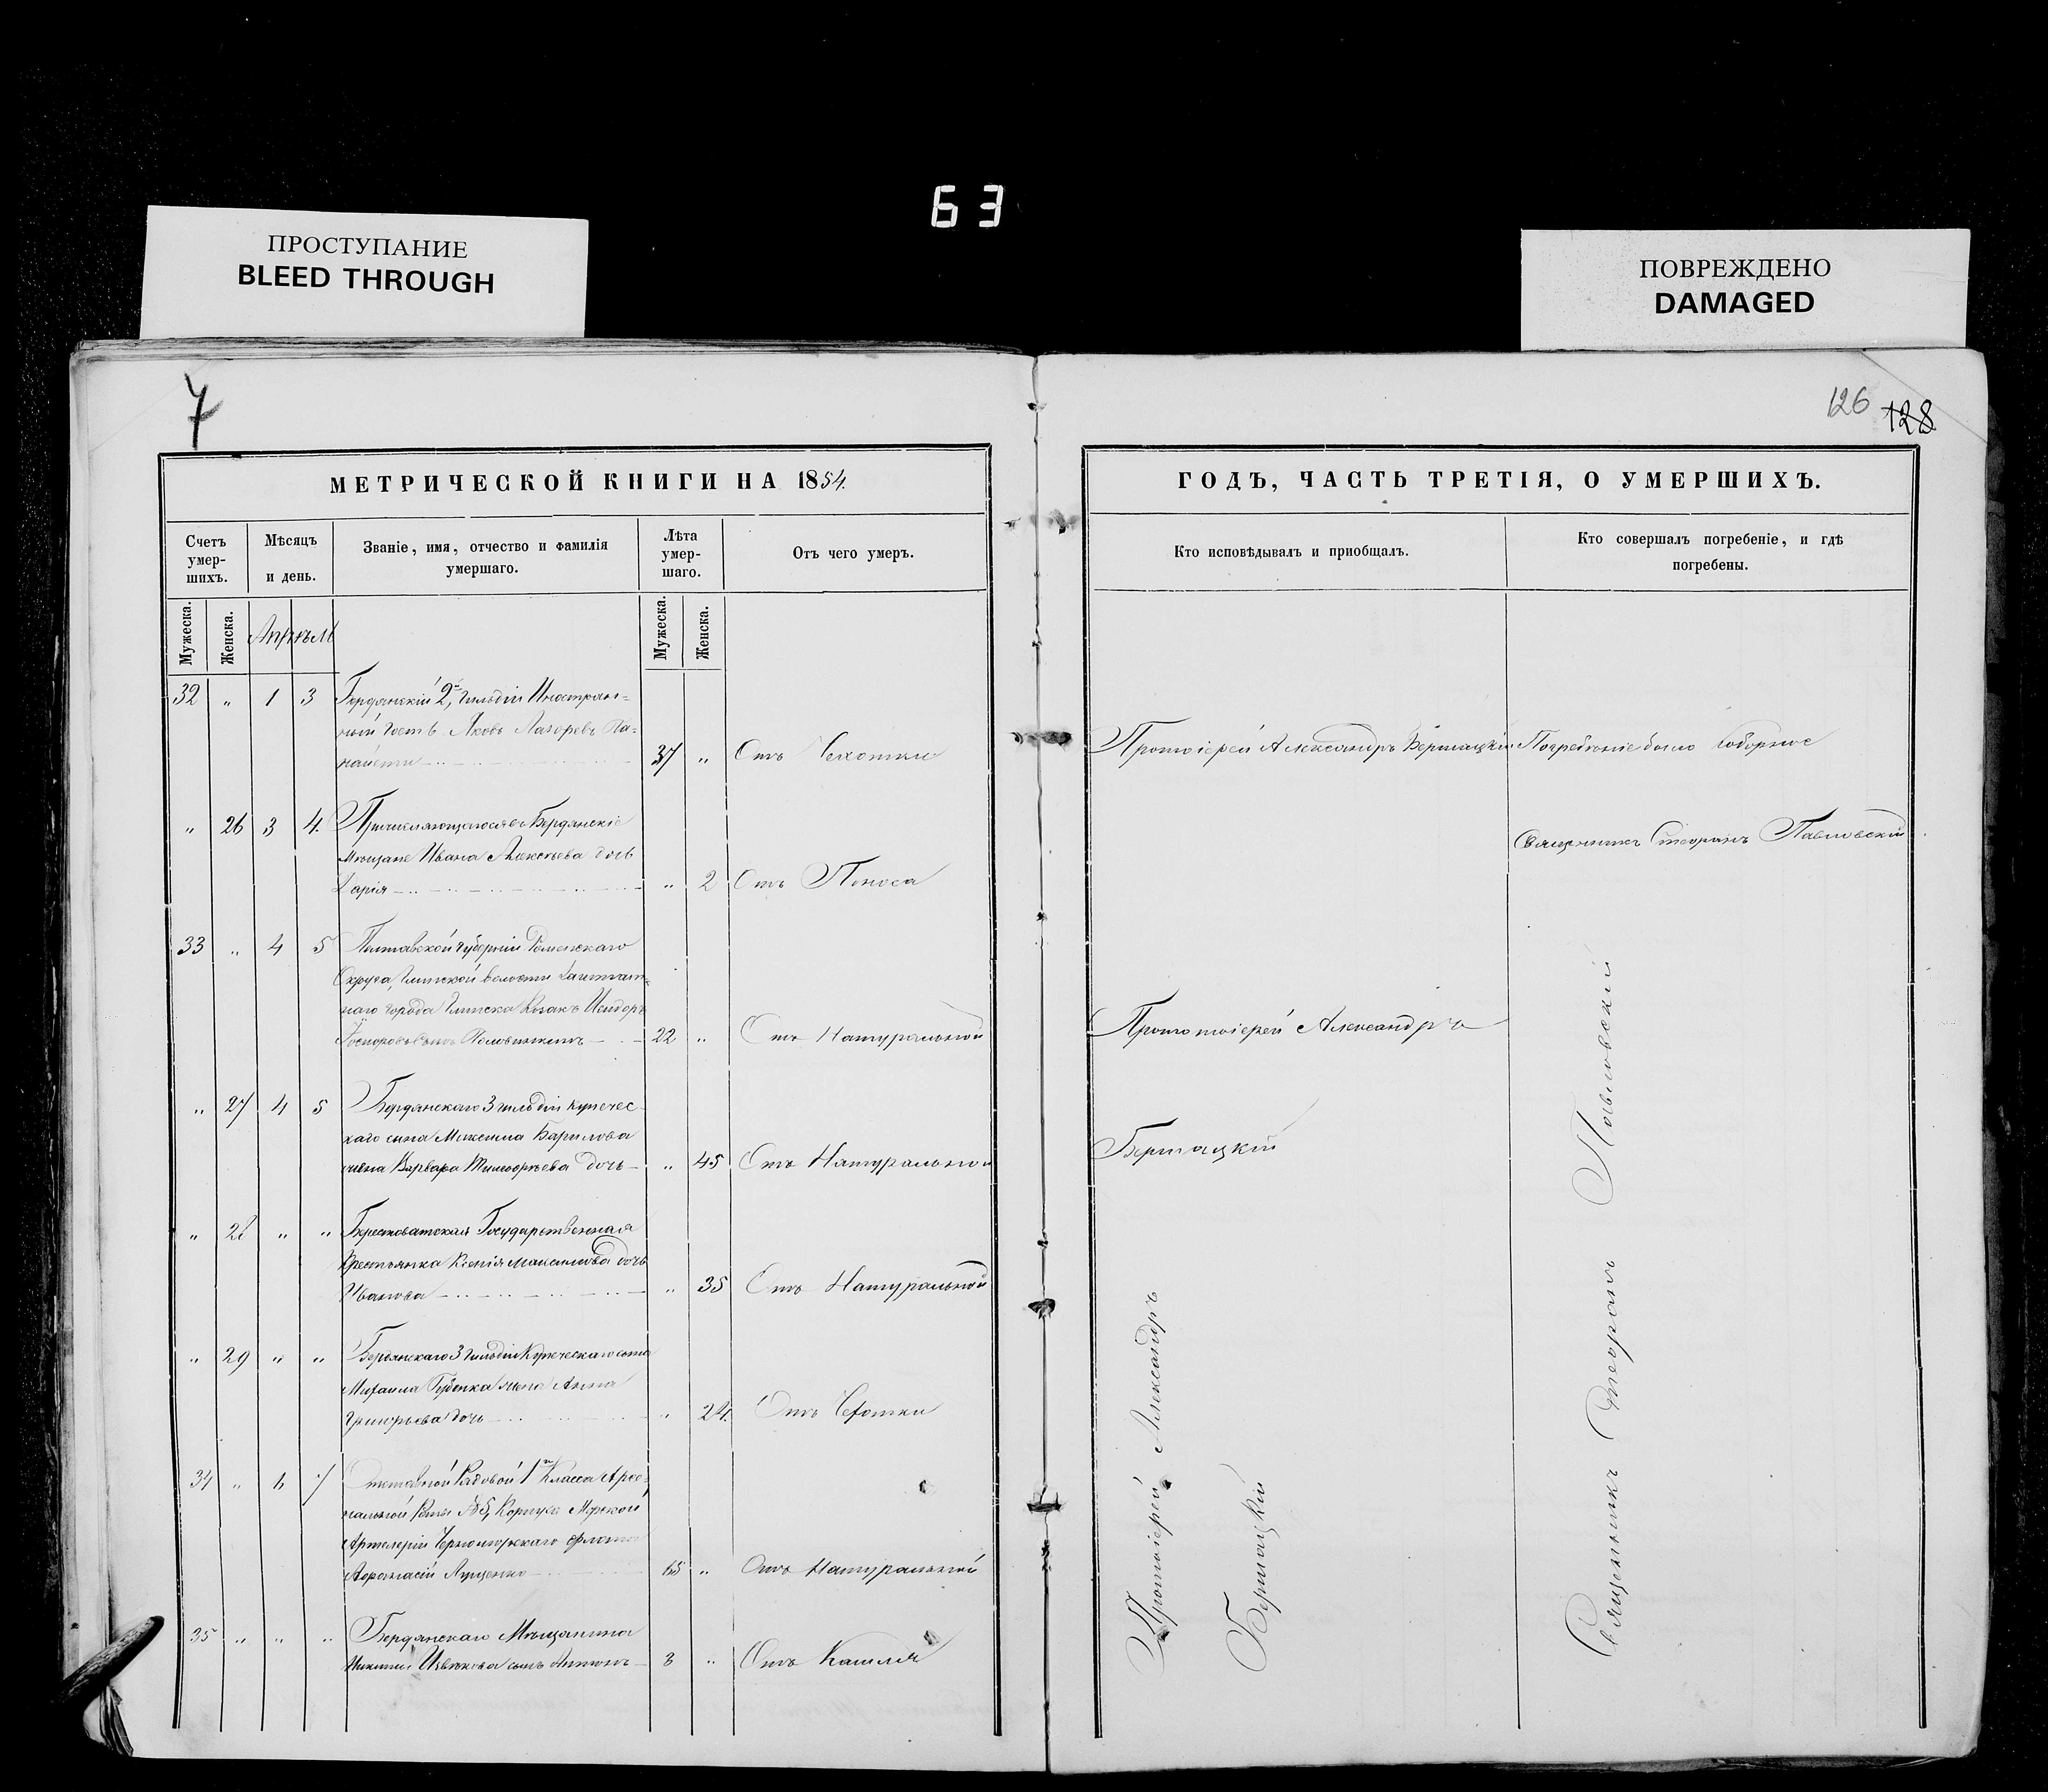 63
ПРОСТУПАНИЕ
BLEED THROUGH
ПОВРЕЖДЕНО
DAMAGED
7
126 128
МЕТРИЧЕСКОЙ КНИГИ НА 1854.
ГОДЪ, ЧАСТЬ ТРЕТІЯ, О УМЕРШИХЪ.
Счетъ умер-шихъ.
Мѣсяцъ и день.
Званіе, имя, отчество и фамилія умершаго.
Лѣта умер-шаго.
Отъ чего умеръ.
Кто исповѣдывалъ и приобщалъ.
Кто совершалъ погребеніе, и гдѣ погребены.
Мужеска. Женска. Апрѣль Мужеска. Женска.
32 " 1 3 Бердянскій 2й гильдіи Иностран=
ный гость Яковъ Лазоревъ
37 " Отъ Чехотки
Протоіерей Александръ Бершацкій Погребеніе было соборное
" 26 3 4. Причисляющагося въ Бердянскіе
Мѣщане Ивана Алексѣева дочь
Дарія " 2 Отъ Поноса
Священникъ Стефанъ Павловскій
33 " 4 5 Полтавской губерніи Роменскаго
Округа, Глинской волости Заштат=
наго города Глинска Козакъ Исидоръ
22 " Отъ Натуральной
Протоіерей Александръ
" 27 4 5 Бердянскаго 3 гильдіи купечес
каго сына Максима Барилова
жена Варвара Тимофѣева дочь " 45 Отъ Натуральной
Бершацкій
" 28 " " Берестоватская Государственная
Крестьянка Ксенія Максимова дочь
Иванова " 35 Отъ Натуральной
" 29 " " Бердянскаго 3 гильдіи Купеческаго сына
Михаила Губенка жена Анна
Григорьева дочь " 24. Отъ Чехотки
34 " 6 7 Отставной Рядовой 1го Класса Арсе=
нальной роты № 5, Корпуса Морской
Артилеріи Черноморскаго флота
Афанасій Луценко 65 " Отъ Натуральной
35 " " " Бердянскаго Мѣщанина
Никиты сынъ Антонъ 3 " Отъ Кашля
Протоіерей Александръ
Бершацкій
Священникъ Стефанъ Павловскій